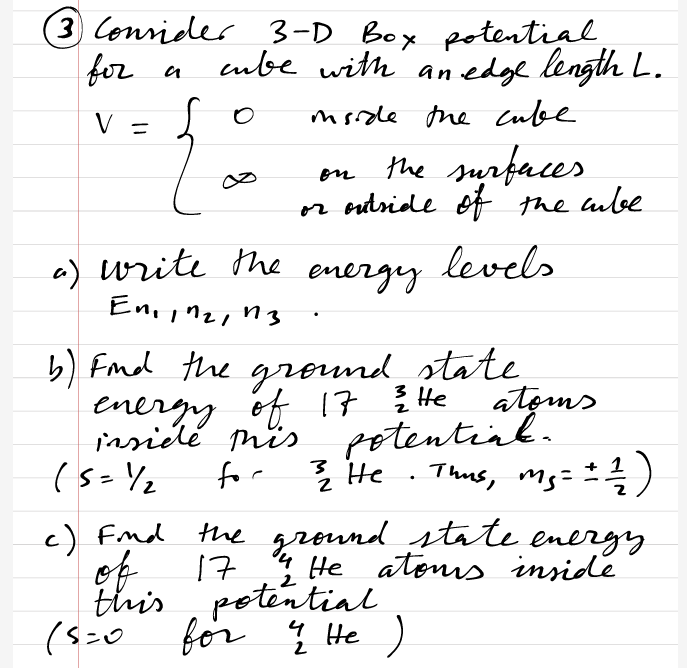 ③ Consider 3-D Box potential
for a cube with an edge length L.
V = { 0 inside the cube
∞ on the surfaces
or outside of the cube
a) Write the energy levels
En₁,n₂,n₃ .
b) Find the ground state
energy of 17 ³₂He atoms
inside this potential.
(S=1/2 for ³₂He. Thus, mₛ=±1/2)
c) Find the ground state energy
of 17 ⁴₂He atoms inside
this potential
(S=0 for ⁴₂He)